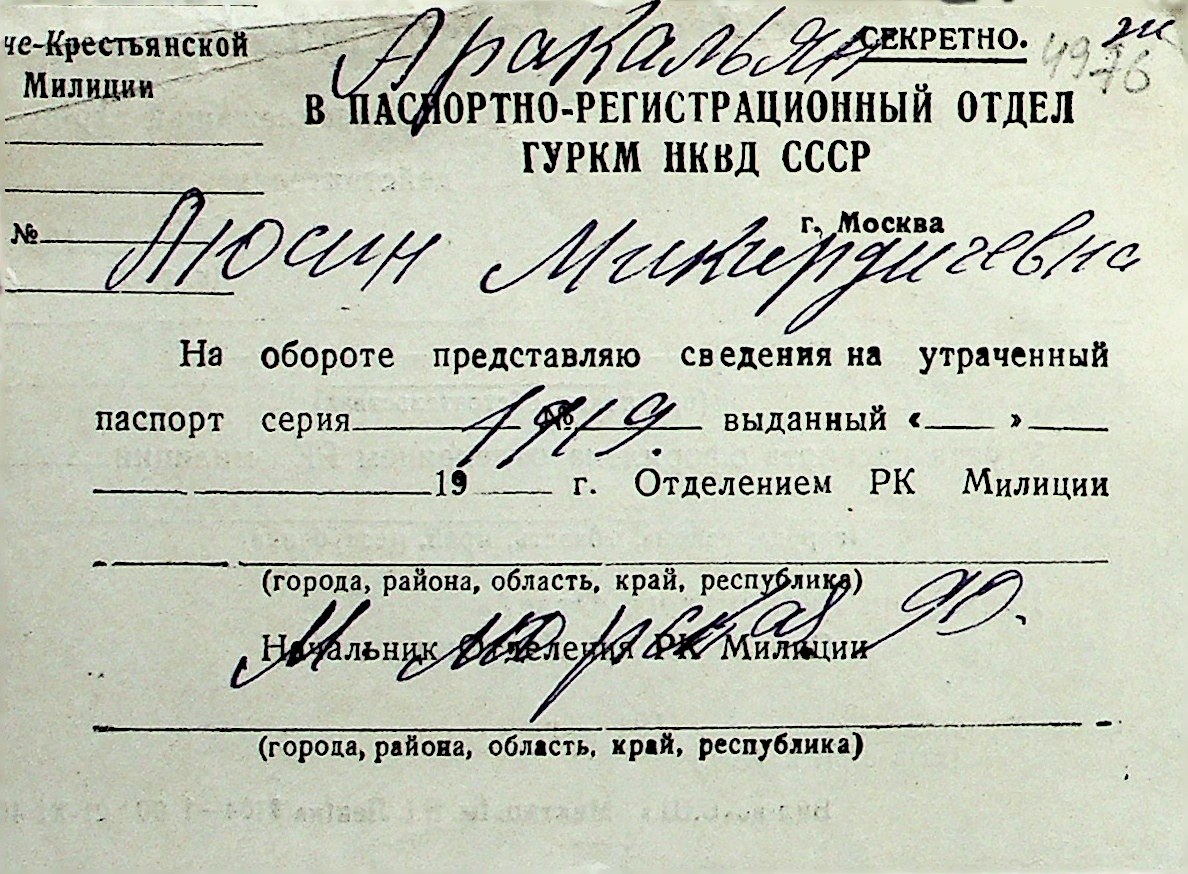 че-Крестьянской
Милиции
Аракальян
СЕКРЕТНО.
4976
В ПАСПОРТНО-РЕГИСТРАЦИОННЫЙ ОТДЕЛ
ГУРКМ НКВД СССР
г. Москва
№
Люсин Микирдичевна
На обороте представляю сведения на утраченный
паспорт серия № выданный « »
1919.
19 г. Отделением РК Милиции
(города, района, область, край, республика)
90.
Начальник Отделения РК Милиции
(города, района, область, край, республика)